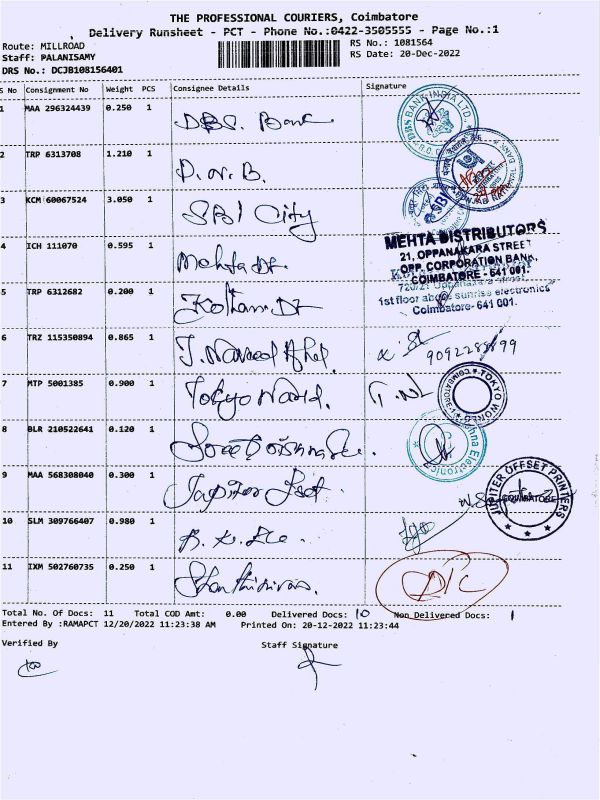 THE PROFESSIONAL COURIERS, Coimbatore
Delivery Runsheet - PCT - Phone No.:0422-3505555 - Page No.:1
Route: MILLROAD
RS No.: 1081564
Staff: PALANISAMY
RS Date: 20-Dec-2022
DRS No.: DCJB108156401
S No Consignment No Weight PCS Consignee Details Signature
1 MAA 296324439 0.250 1 DBS. Bank
DBS BANK INDIA LTD.
2 TRP 6313708 1.210 1 P.N.B.
PUNJAB NATIONAL BANK
3 KCM 60067524 3.050 1 SBI City
SBI
4 ICH 111070 0.595 1 Mehta Dt.
MEHTA DISTRIBUTORS
21, OPPANAKARA STREET
OPP. CORPORATION BANK,
COIMBATORE - 641 001.
5 TRP 6312682 0.200 1 Kothari Dt
720/21 Oppanakara Street
1st floor above sunrise electronics
Coimbatore- 641 001.
6 TRZ 115350894 0.865 1
7 MTP 5001385 0.900 1 Tokyo World.
TOKYO WORLD
COIMBATORE
8 BLR 210522641 0.120 1
Electronics
9 MAA 568308040 0.300 1 Jupiter
JUPITER OFFSET PRINTERS
COIMBATORE
10 SLM 309766407 0.980 1
11 IXM 502760735 0.250 1
Total No. Of Docs: 11 Total COD Amt: 0.00 Delivered Docs: 10 Non Delivered Docs: 1
Entered By :RAMAPCT 12/20/2022 11:23:38 AM Printed On: 20-12-2022 11:23:44
Verified By Staff Signature